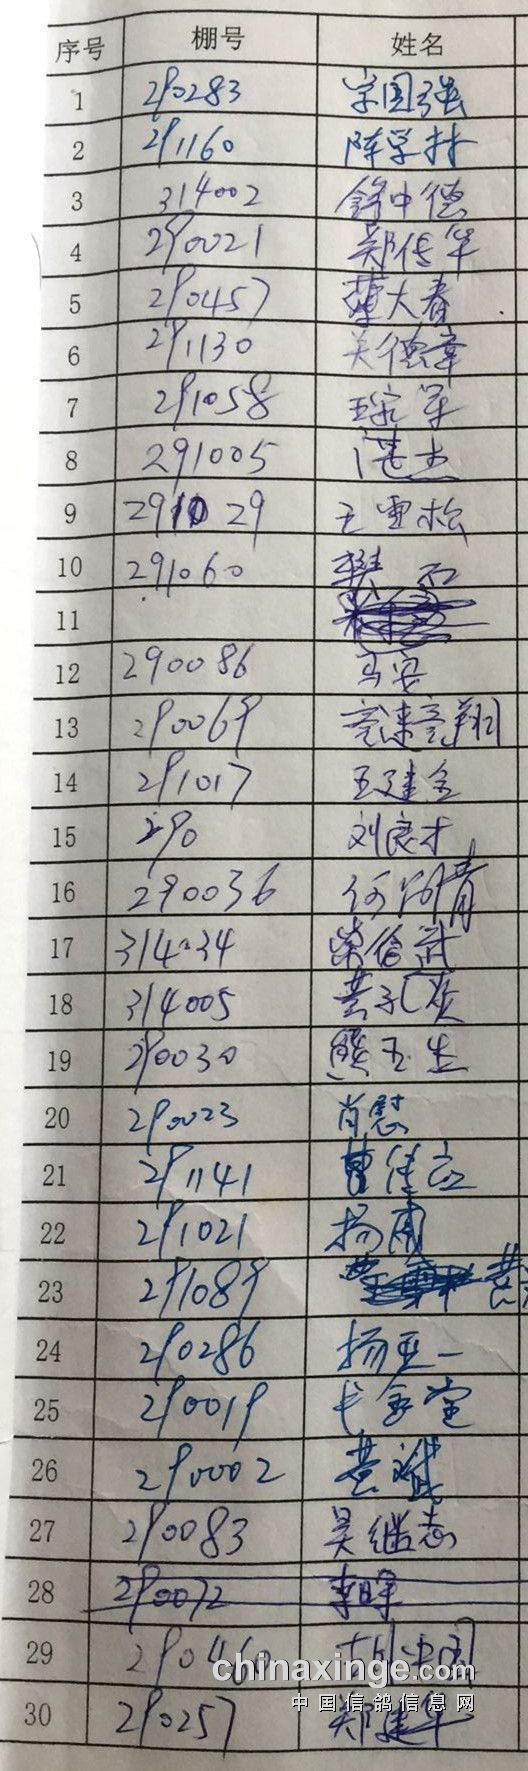 序号 棚号 姓名
1 290283 宋国强
2 291160 陈学林
3 314002 中德
4 290021 郑传华
5 290457 大春
6 291130 吴德章
7 291058 军
8 291005 杰
9 291029 王雪松
10 291060 樊石
11
12 290086 马安
13 290069 亮速亮翔
14 291017 王建全
15 290 刘良才
16 290036 何 青
17 314034 荣 武
18 314005 黄
19 290030 熊玉生
20 290023 肖慰
21 291141 曹 应
22 291021 杨周
23 291089 黄
24 290286 杨亚一
25 290019 金堂
26 290002 黄斌
27 290083 吴继志
28 290072 李晖
29 290460
chinaxinge.com
中国信鸽信息网
30 290257 郑建华